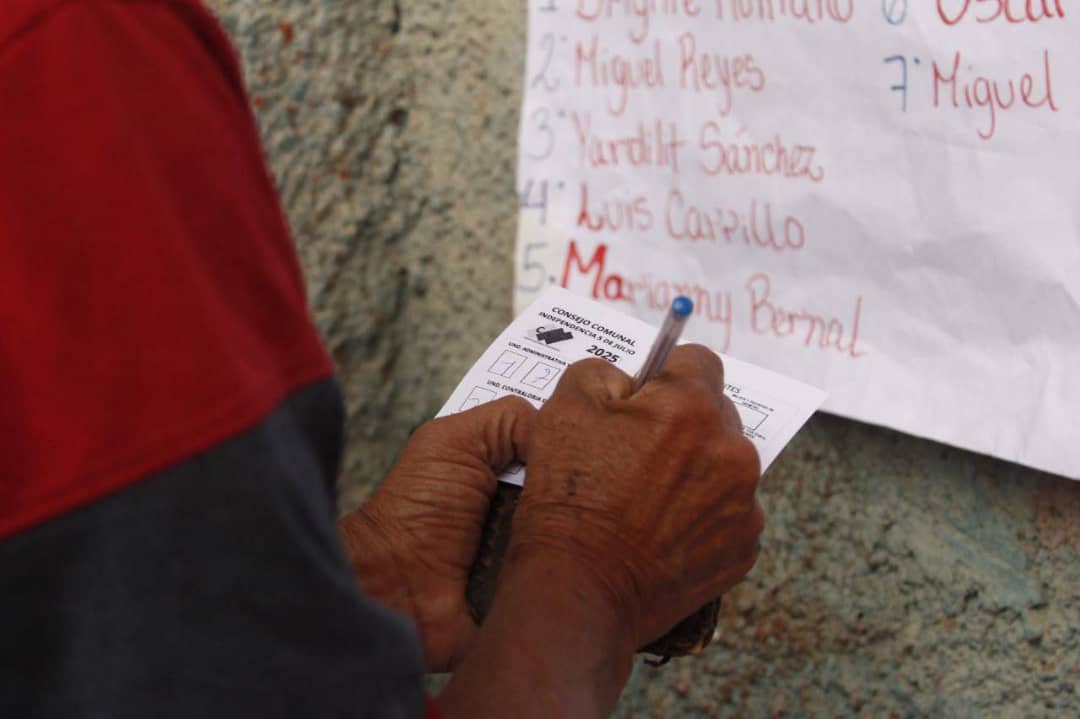 2. Miguel Reyes
3. Yardilit Sánchez
4. Luis Carrillo
5. Marianny Bernal
6 Oscar
7. Miguel
CONSEJO COMUNAL
INDEPENDENCIA 5 DE JULIO
2025
UND. ADMINISTRATIVA
1 7
UND. CONTRALORIA